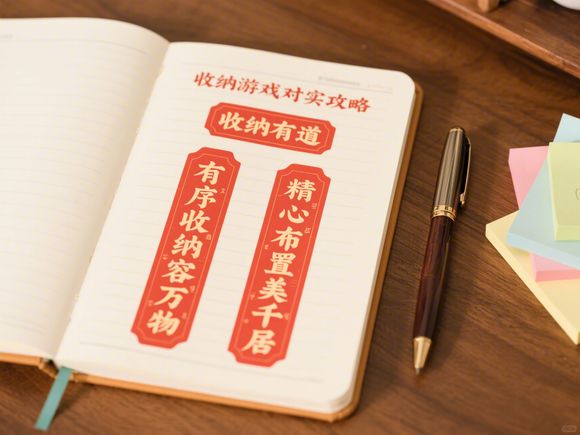 收纳游戏对实攻略
收纳有道
有序收纳容万物
精心布置美千居